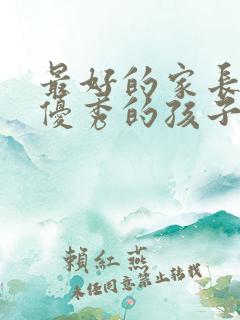 最好的家長
優秀的孩子
賴紅燕
未经同意禁止转载